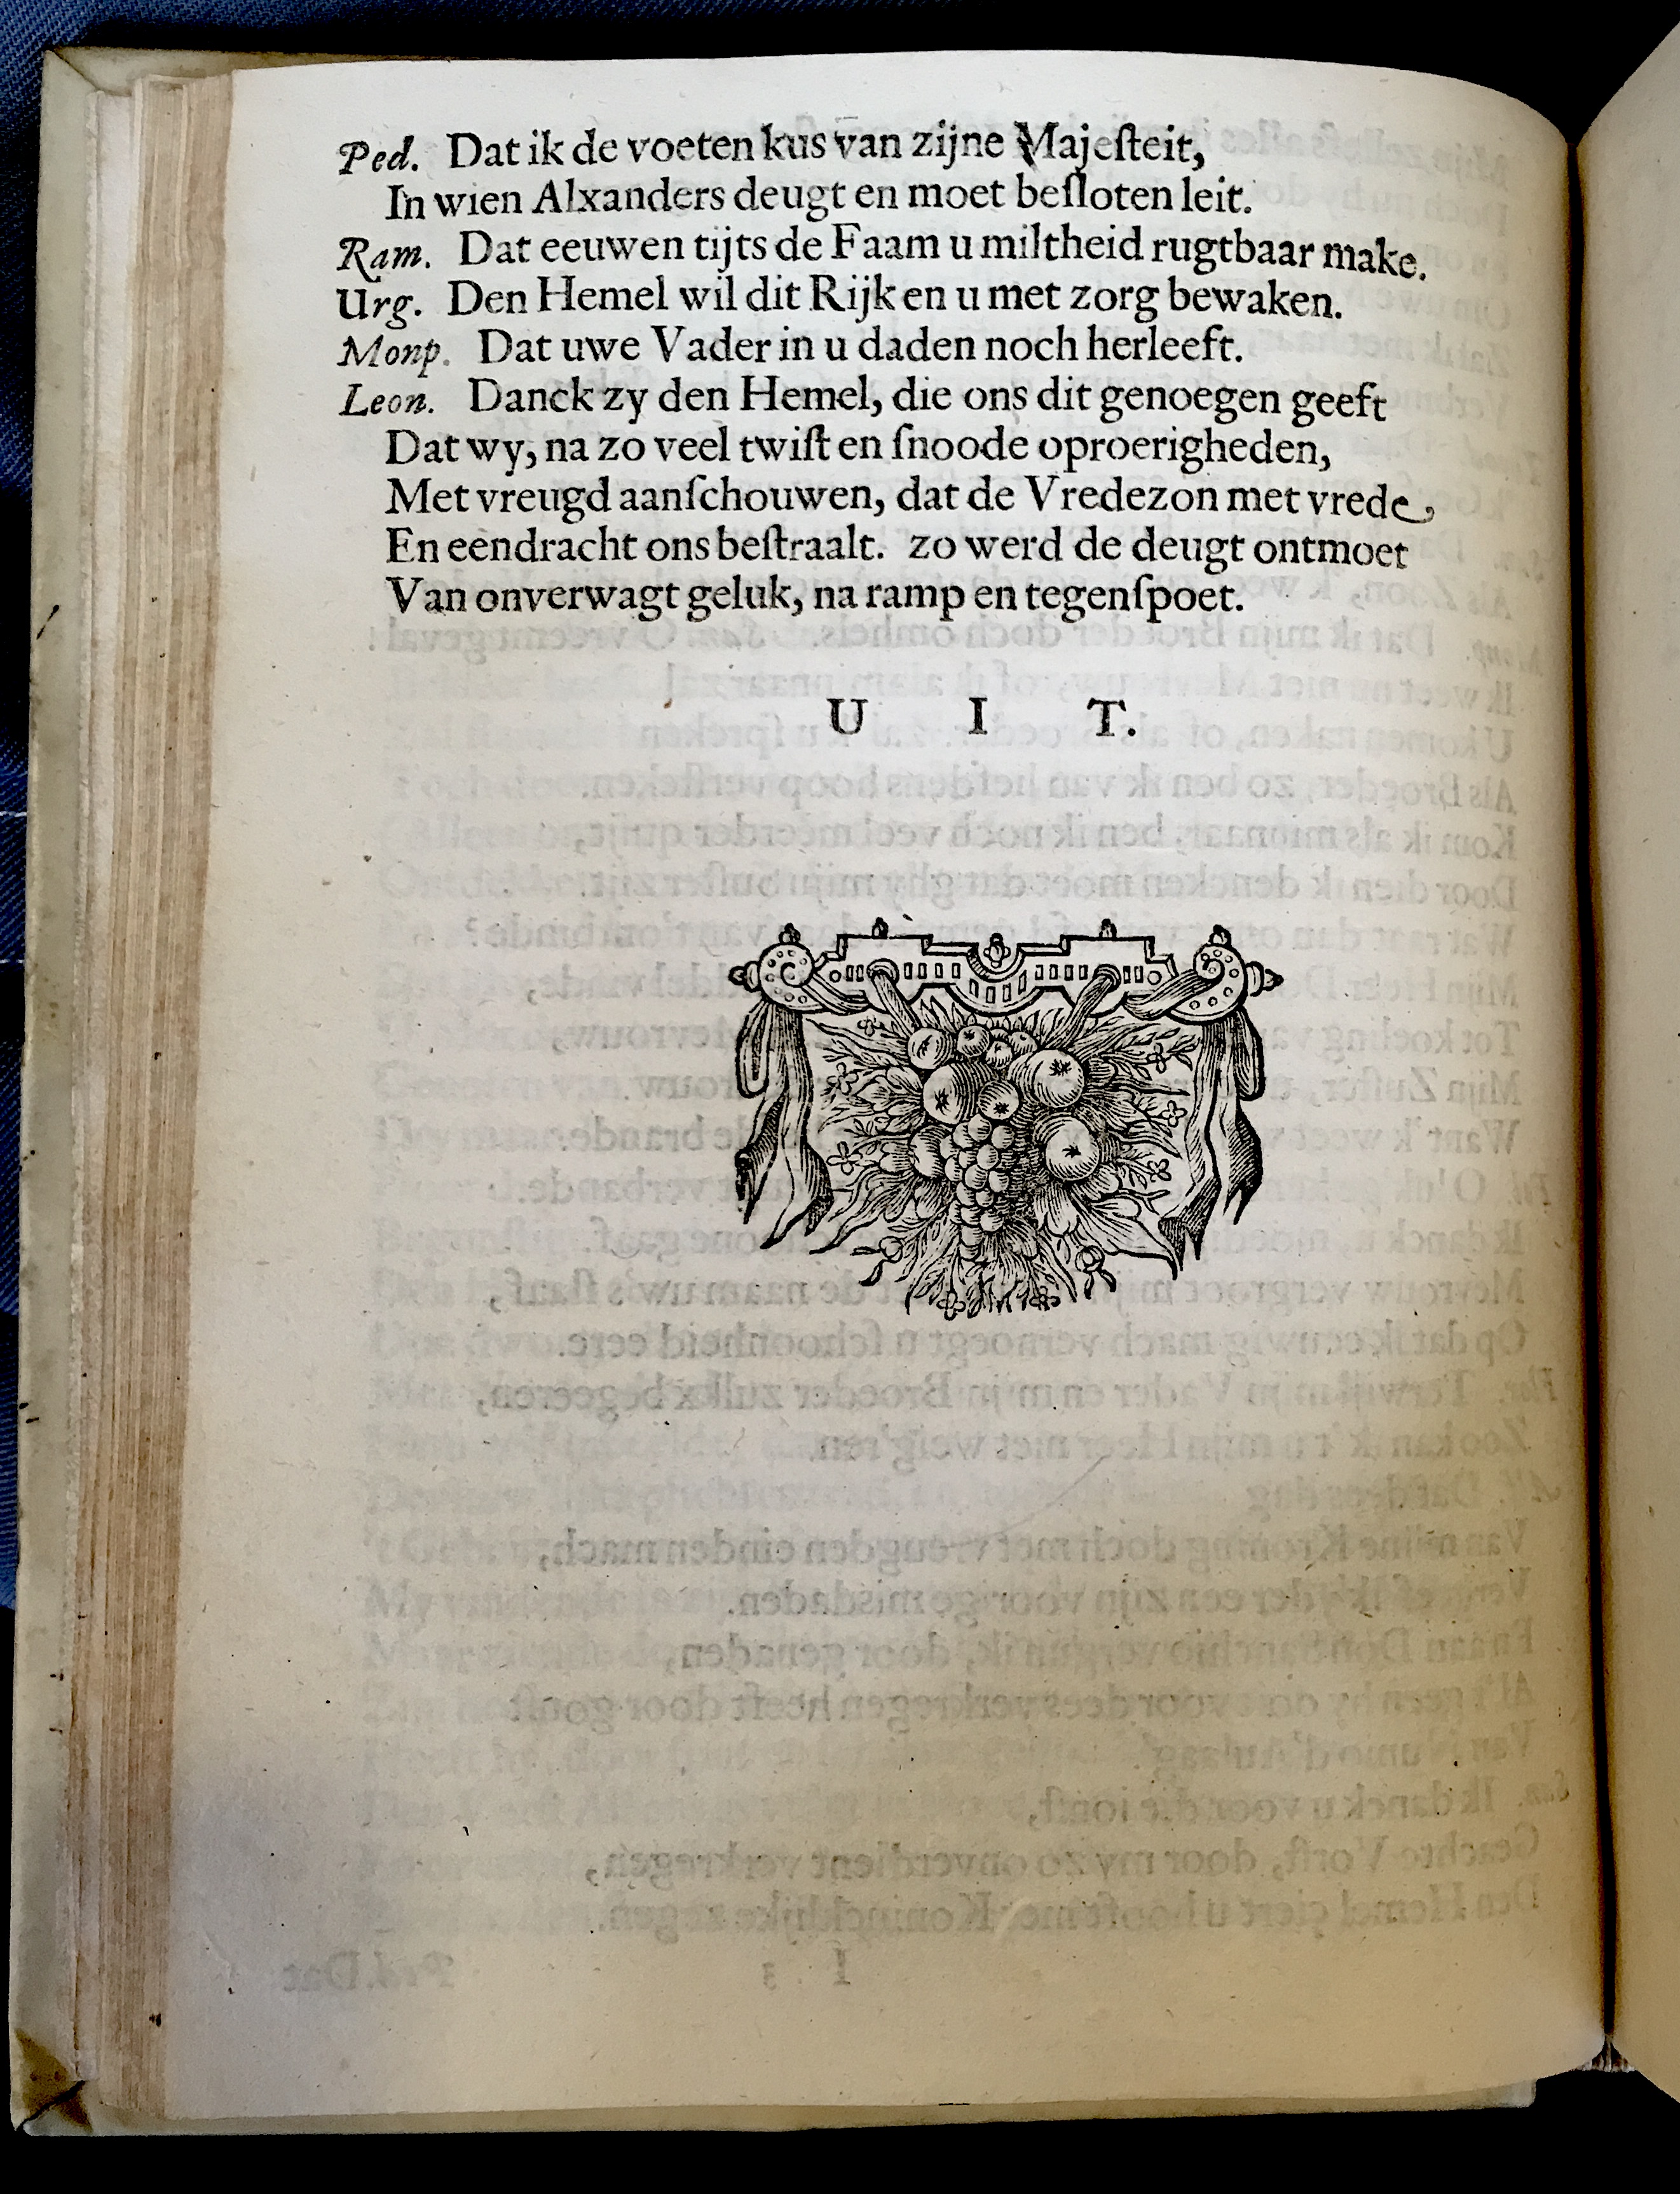 Ped. Dat ik de voeten kus van zijne Majeſteit,
In wien Alxanders deugt en moet beſloten leit.
Ram. Dat eeuwen tijts de Faam u miltheid rugtbaar make.
Urg. Den Hemel wil dit Rijk en u met zorg bewaken.
Monp. Dat uwe Vader in u daden noch herleeft.
Leon. Danck zy den Hemel, die ons dit genoegen geeft
Dat wy, na zo veel twiſt en ſnoode oproerigheden,
Met vreugd aanſchouwen, dat de Vredezon met vrede,
En eendracht ons beſtraalt. zo werd de deugt ontmoet
Van onverwagt geluk, na ramp en tegenſpoet.
U I T.